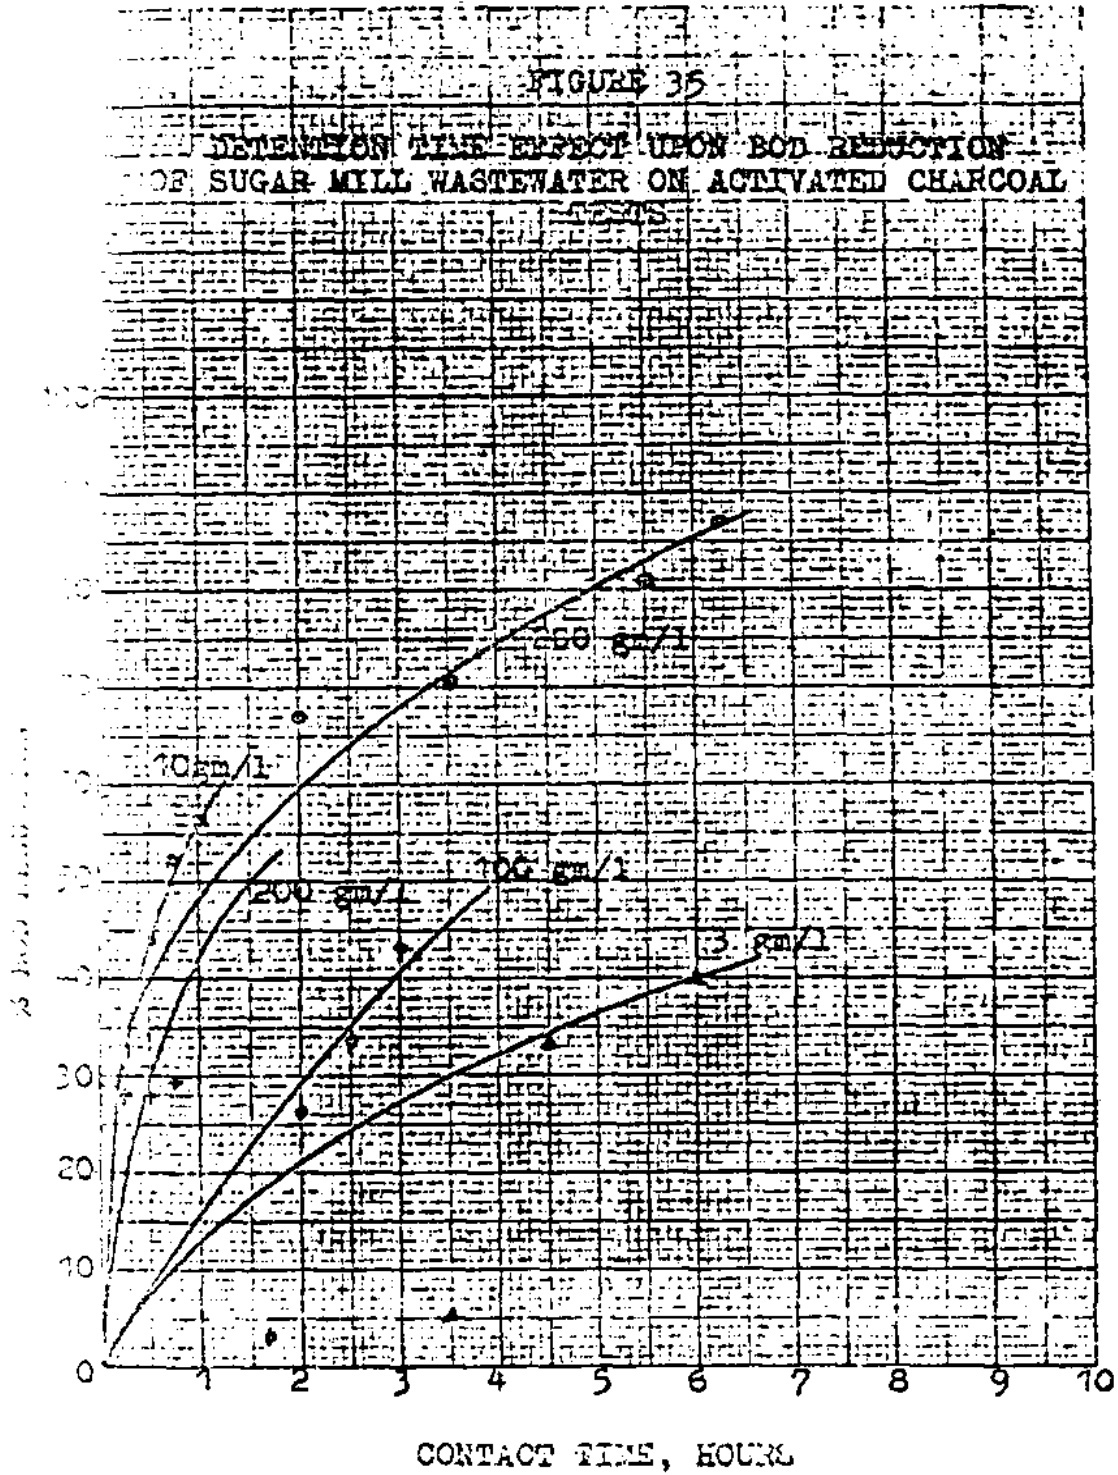 FIGURE 35
DETENTION TIME EFFECT UPON BOD REDUCTION
OF SUGAR MILL WASTEWATER ON ACTIVATED CHARCOAL
TESTS
200 gm/l
10gm/l
100 gm/l
200 gm/l
3 gm/l
% BOD
30
20
10
0
1 2 3 4 5 6 7 8 9 10
CONTACT TIME, HOURS